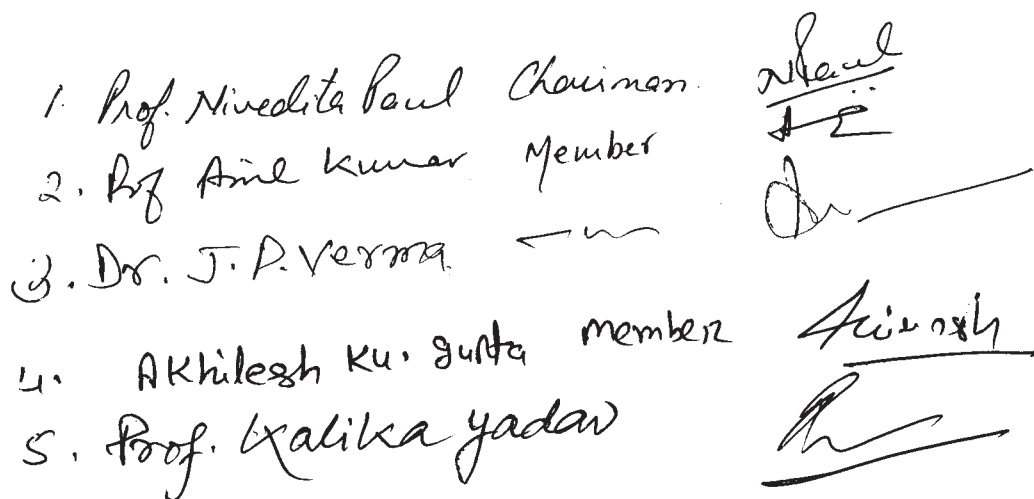 1. Prof. Nivedita Paul Chairman NPaul
2. Prof Anil Kumar Member
3. Dr. J. P. Verma
4. Akhilesh Ku. Gupta Member
5. Prof. Kalika Yadav